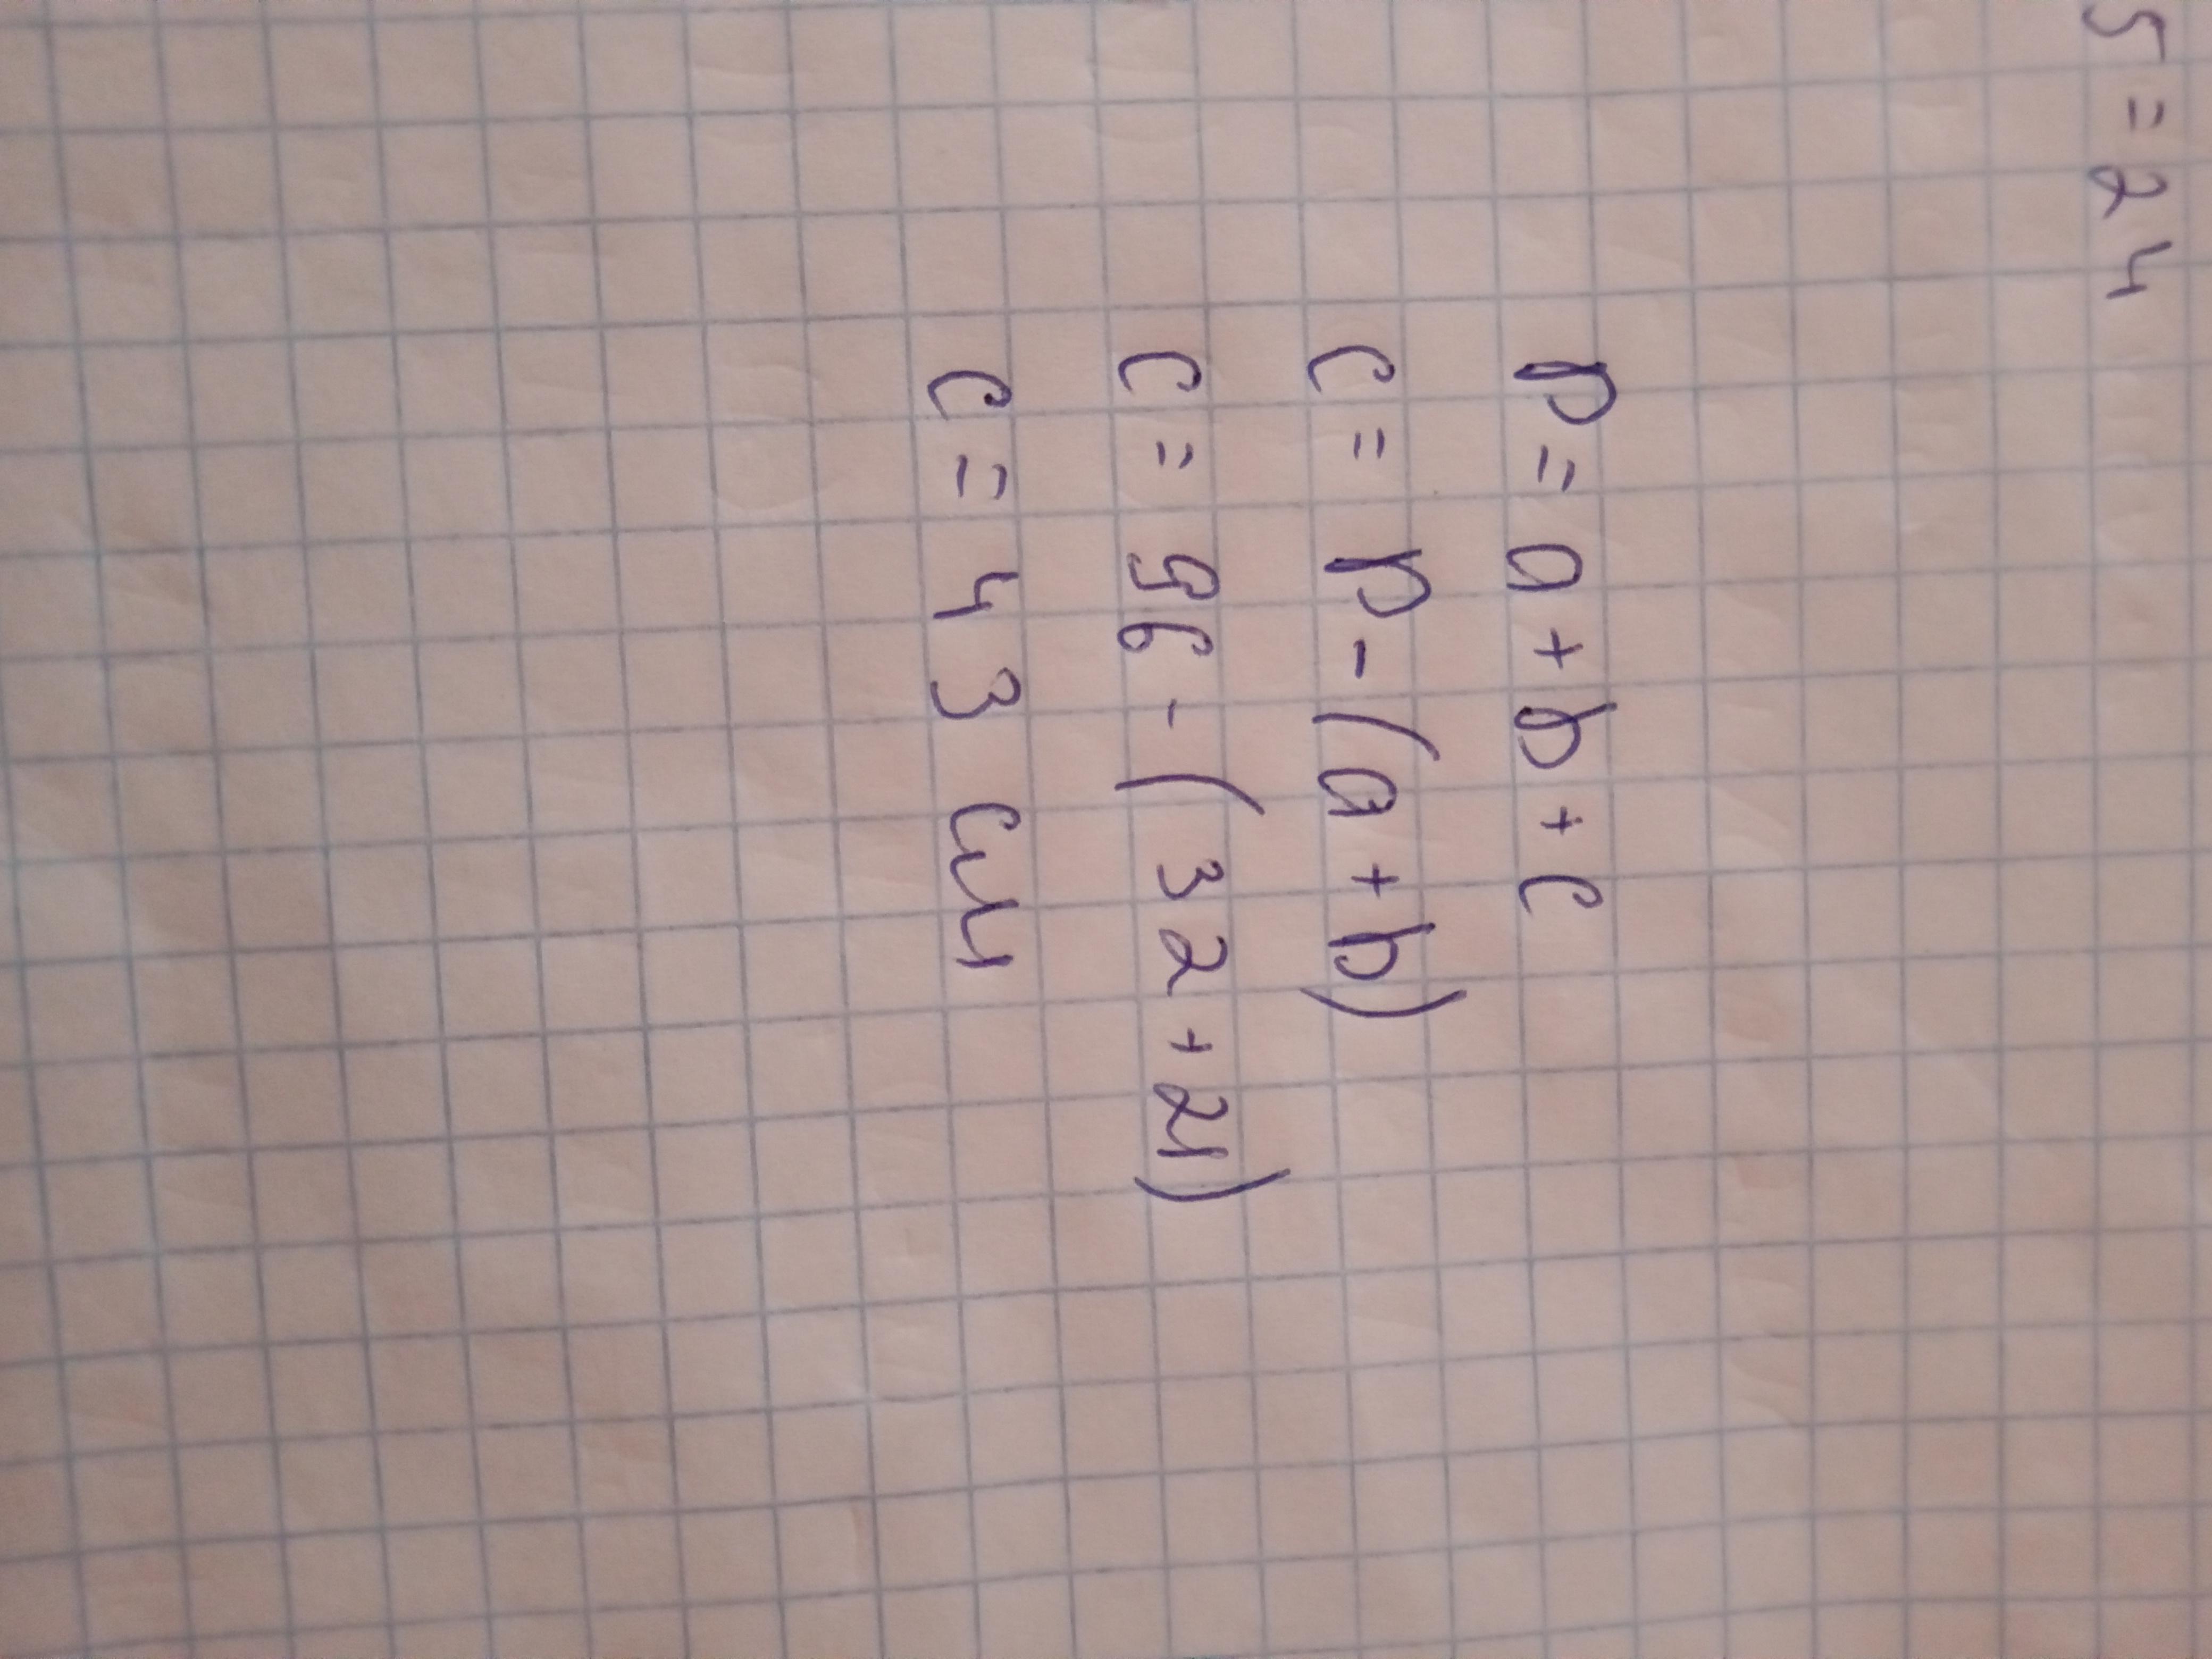 5 = 24
P = a + b + c
c = P - (a + b)
c = 96 - (32 + 21)
c = 43 см